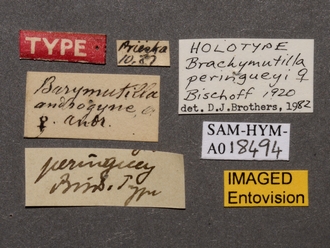 TYPE
Prieska
10.87
HOLOTYPE
Brachymutilla
peringueyi ♀
Bischoff 1920
det. D.J. Brothers, 1982
Barymutilla
androgyne,
♀ Andr.
SAM-HYM-
A018494
peringuey
Bisch. Type
IMAGED
Entovision